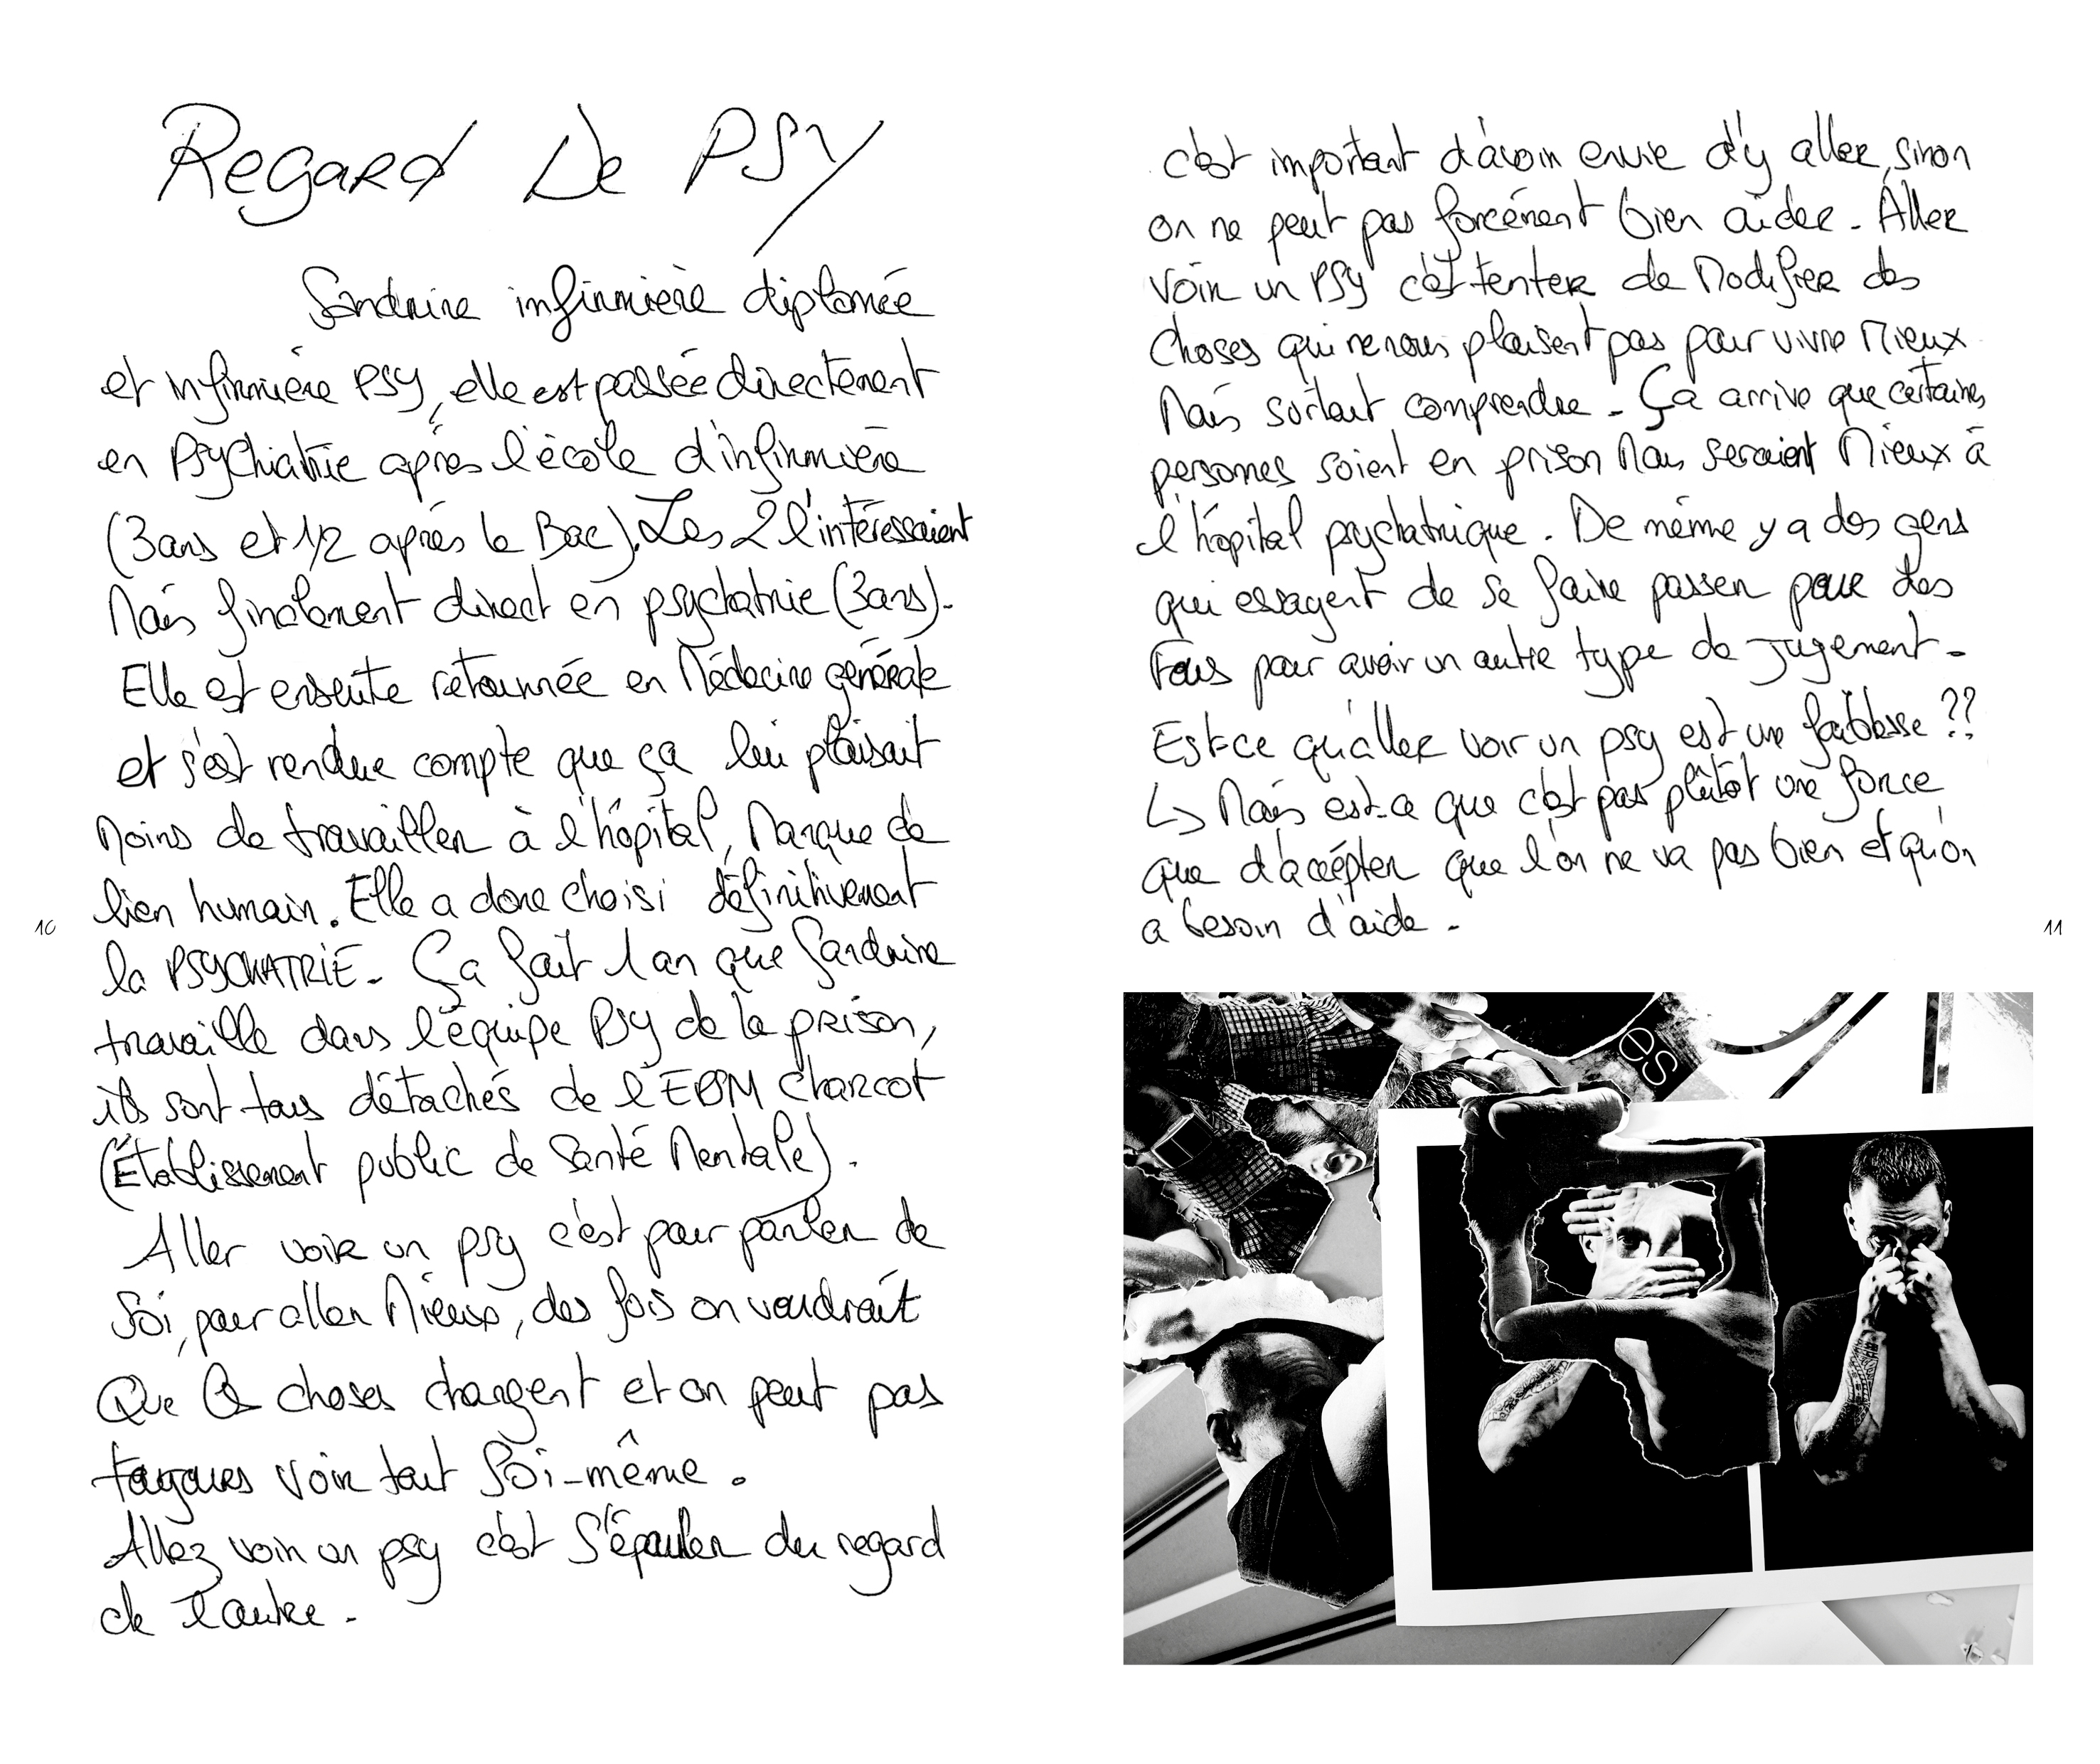 Regard De PSY
Sandrine infirmière diplomée
et infirmière PSY, elle est passée directement
en Psychiatrie après l'école d'infirmière
(3ans et 1/2 après le Bac). Les 2 l'intéressaient
Mais finalement direct en psychatrie (3ans).
Elle est ensuite retournée en Médecine générale
et s'est rendue compte que ça lui plaisait
moins de travailler à l'hôpital, Manque de
lien humain. Elle a donc choisi définitivement
la PSYCHATRIE. Ça fait 1 an que Sandrine
travaille dans l'équipe Psy de la prison,
ils sont tous détachés de l'EPSM Charcot
(Établissement public de Santé Mentale).
Aller voir un psy c'est pour parler de
Soi, pour aller Mieux, des fois on voudrait
Que les choses changent et on peut pas
toujours voir tout Soi-même.
Allez voir un psy c'est S'épauler du regard
de l'autre.
10
c'est important d'avoir envie d'y aller, sinon
on ne peut pas forcément bien aider. Aller
voir un PSY c'est tenter de Modifier des
Choses qui ne nous plaisent pas pour vivre Mieux
Mais surtout comprendre. Ça arrive que certaines
personnes soient en prison Mais seraient Mieux à
l'hôpital psychatrique. De même y a des gens
qui essayent de se faire passer pour des
Fous pour avoir un autre type de Jugement.
Est-ce qu'aller voir un psy est une faiblesse ??
↳ Mais est-ce que c'est pas plutôt une force
que d'accépter que l'on ne va pas bien et qu'on
a besoin d'aide.
11
es